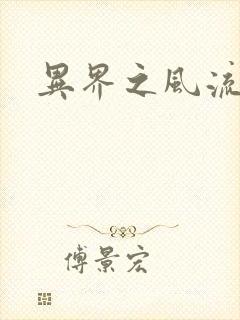 異界之風流
傅景宏